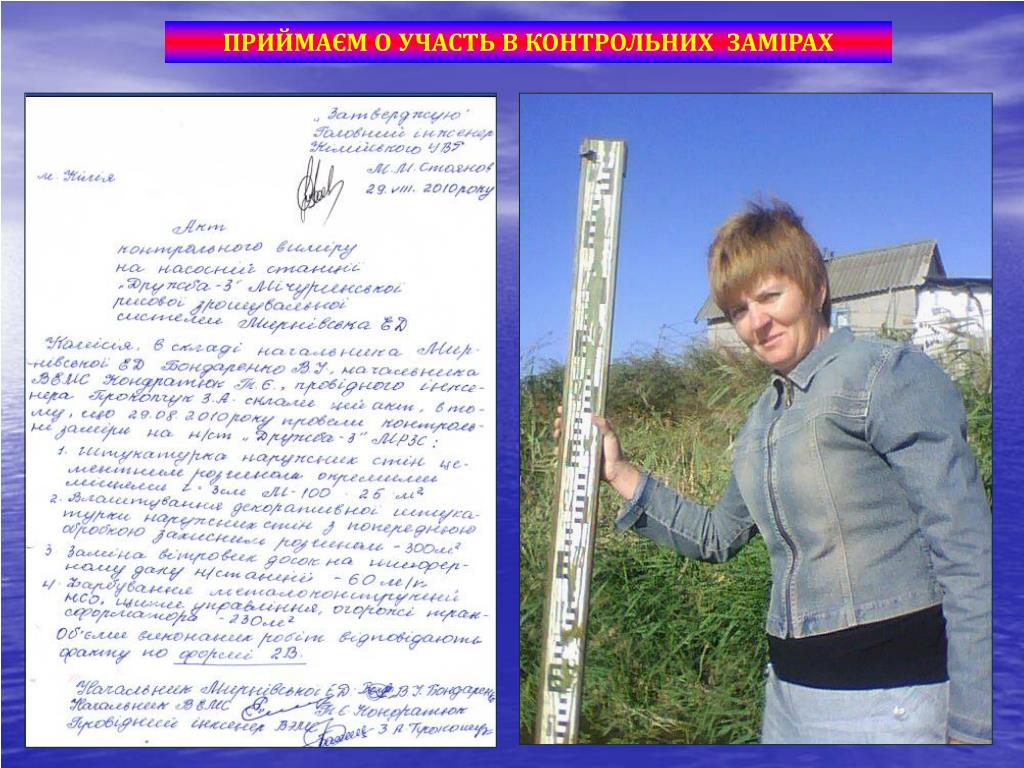 ПРИЙМАЄМ О УЧАСТЬ В КОНТРОЛЬНИХ ЗАМІРАХ
„Затверджую"
Головний інженер
Кілійського УВГ
М.М. Стоянов
м. Кілія
29. VIII. 2010 року
Акт
контрольного виміру
на насосній станції
„Дружба-3" Мічурінської
рисової зрошувальної
системи Мирнівська ЕД
Комісія, в складі начальника Мир-
нівської ЕД Бондаренко В.І., начальника
ВЕМС Кондратюк Т.Є., провідного інже-
нера Прокопчук З.А. склали цей акт, в то-
му, що 29.08.2010 року провели контроль-
ні заміри на н/ст „Дружба-3" МРЗС:
1. Штукатурка наружних стін це-
ментним розчином окремими
місцями М-100 · 26 м²
2. Влаштування декоративної штука-
турки наружних стін з попередньою
обробкою захисним розчином - 300м²
3. Заміна вітрових досок на шифер-
ному даху н/станції - 60 м/п.
4. Фарбування металоконструкцій
НСО, управління, огорожі тран-
сформатора - 230м²
Об'єми виконаних робіт відповідають
факту по формі 2В.
Начальник Мирнівської ЕД В.І. Бондаренко
Начальник ВЕМС Т.Є Кондратюк
Провідний інженер ВЕМС З.А Прокопчук